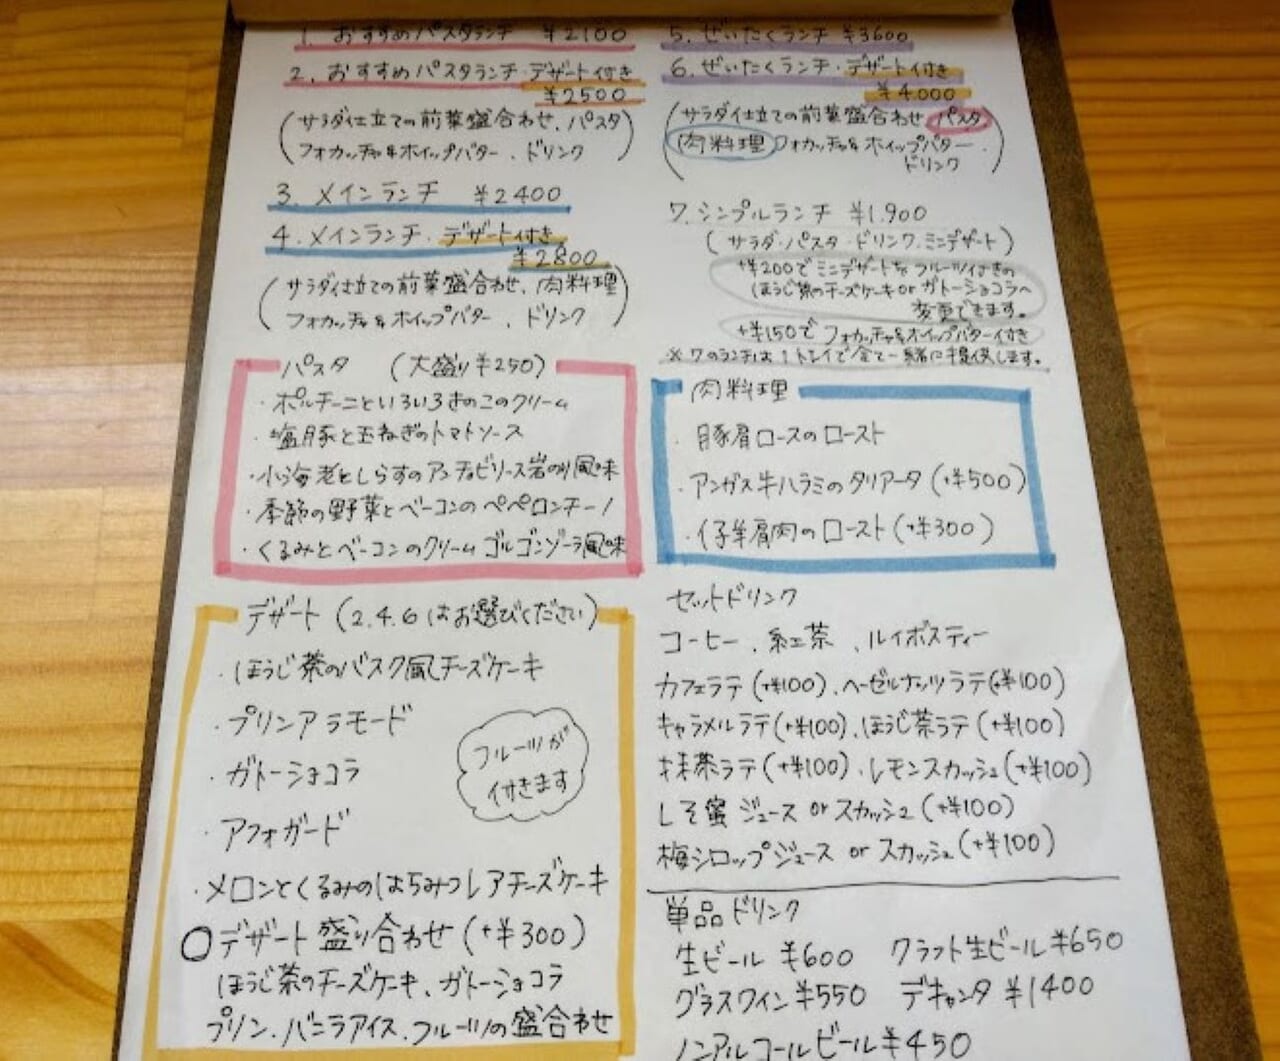 1. おすすめパスタランチ ¥2100
2. おすすめパスタランチ・デザート付き
¥2500
(サラダ仕立ての前菜盛合わせ、パスタ
フォカッチャ&ホイップバター、ドリンク)
3. メインランチ ¥2400
4. メインランチ・デザート付き
¥2800
(サラダ仕立ての前菜盛合わせ、肉料理
フォカッチャ&ホイップバター、ドリンク)
5. ぜいたくランチ ¥3600
6. ぜいたくランチ・デザート付き
¥4,000
(サラダ仕立ての前菜盛合わせ パスタ
肉料理 フォカッチャ&ホイップバター、
ドリンク)
7. シンプルランチ ¥1,900
(サラダ・パスタ・ドリンク、ミニデザート)
+¥200でミニデザートをフルーツ付きの
ほうじ茶のチーズケーキorガトーショコラへ
変更できます。
+¥150でフォカッチャ&ホイップバター付き
※7のランチは1トレイで全て一緒に提供します。
パスタ (大盛り¥250)
・ポルチーニといろいろきのこのクリーム
・塩豚と玉ねぎのトマトソース
・小海老としらすのアンチョビソース岩のり風味
・季節の野菜とベーコンのペペロンチーノ
・くるみとベーコンのクリームゴルゴンゾーラ風味
肉料理
・豚肩ロースのロースト
・アンガス牛ハラミのタリアータ(+¥500)
・仔羊肩肉のロースト(+¥300)
デザート(2.4.6はお選びください)
・ほうじ茶のバスク風チーズケーキ
・プリンアラモード
・ガトーショコラ
・アフォガード
フルーツが
付きます
・メロンとくるみのはちみつレアチーズケーキ
○デザート盛り合わせ(+¥300)
ほうじ茶のチーズケーキ、ガトーショコラ
プリン、バニラアイス、フルーツの盛合わせ
セットドリンク
コーヒー、紅茶、ルイボスティー
カフェラテ(+¥100)、ヘーゼルナッツラテ(+¥100)
キャラメルラテ(+¥100)、ほうじ茶ラテ(+¥100)
抹茶ラテ(+¥100)、レモンスカッシュ(+¥100)
しそ蜜ジュースorスカッシュ(+¥100)
梅シロップジュースorスカッシュ(+¥100)
単品ドリンク
生ビール ¥600 クラフト生ビール¥650
グラスワイン¥550 デキャンタ ¥1400
ノンアルコールビール¥450